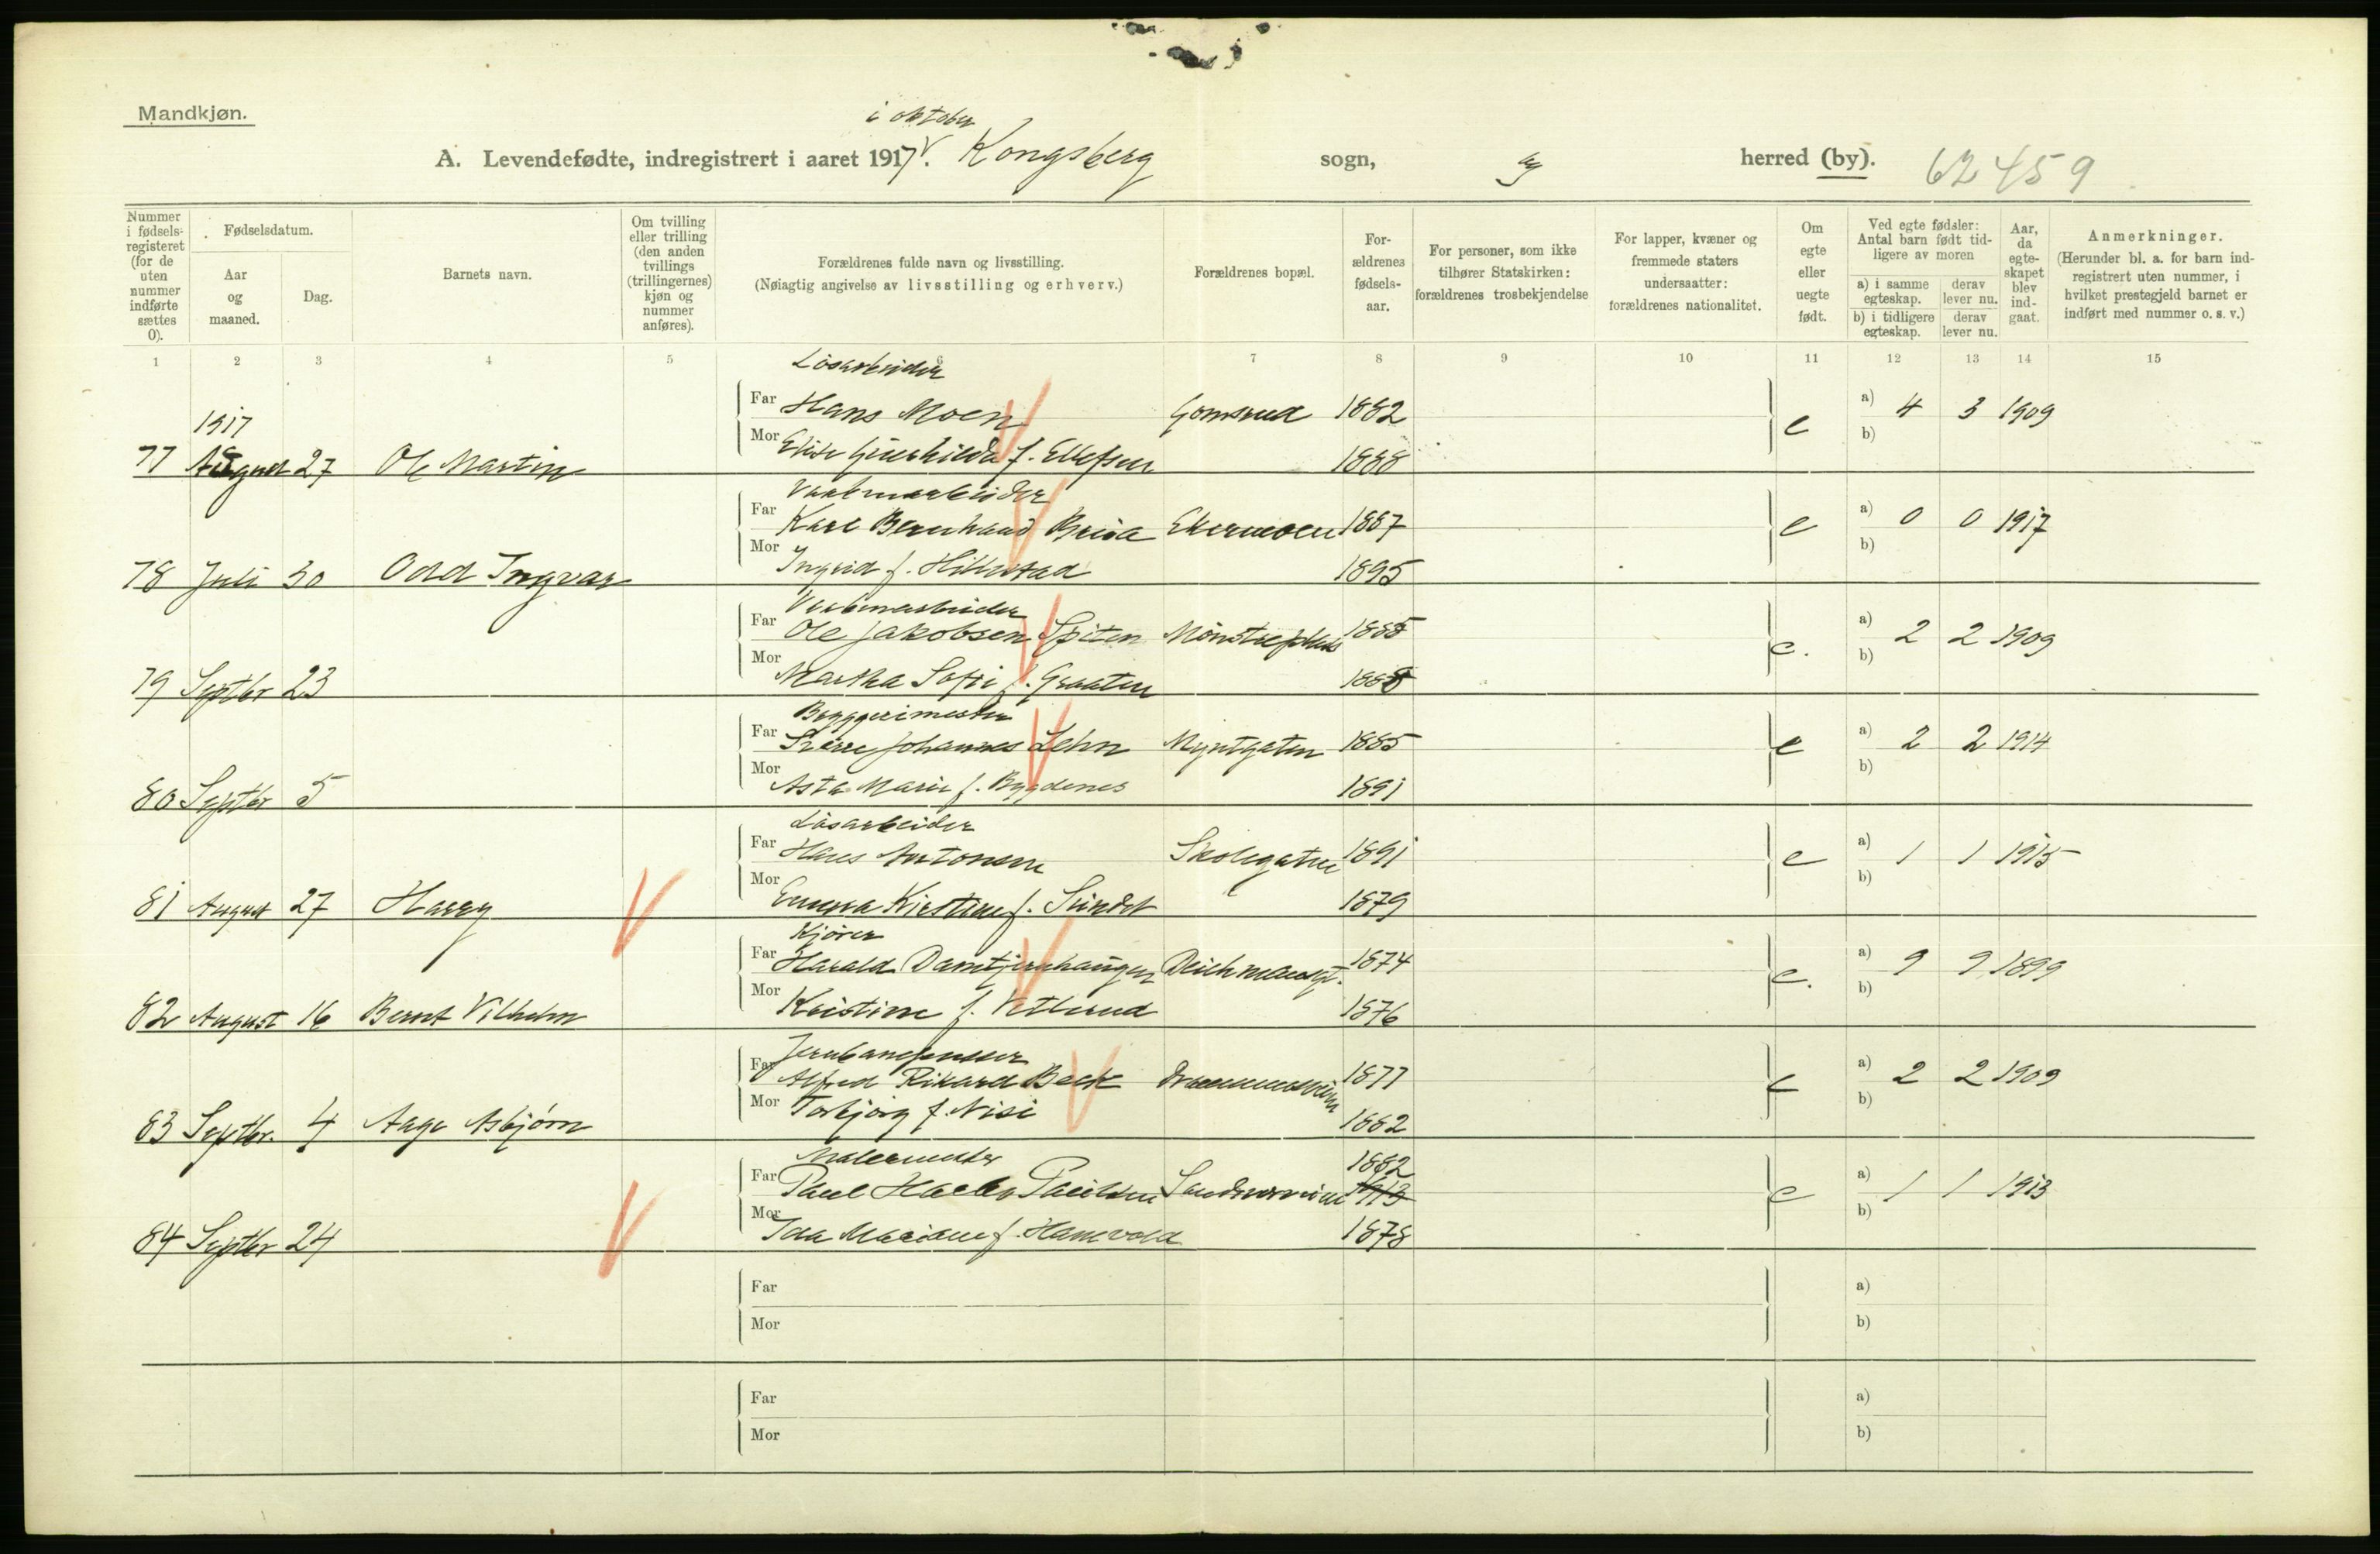 Mandkjøn.
i oktober
A. Levendefødte, indregistrert i aaret 1917. Kongsberg sogn, by herred (by). 62459
Nummer i fødselsregisteret (for de uten nummer indførte sættes 0).
Fødselsdatum.
Aar og maaned.
Dag.
Barnets navn.
Om tvilling eller trilling (den anden tvillings (trillingernes) kjøn og nummer anføres).
Forældrenes fulde navn og livsstilling.
(Nøiagtig angivelse av livsstilling og erhverv.)
Forældrenes bopæl.
Forældrenes fødselsaar.
For personer, som ikke tilhører Statskirken: forældrenes trosbekjendelse
For lapper, kvæner og fremmede staters undersaatter: forældrenes nationalitet.
Om egte eller uegte født.
Ved egte fødsler: Antal barn født tidligere av moren
a) i samme egteskap. derav lever nu.
b) i tidligere egteskap. derav lever nu.
Aar, da egteskapet blev indgaat.
Anmerkninger.
(Herunder bl. a. for barn indregistrert uten nummer, i hvilket prestegjeld barnet er indført med nummer o. s. v.)
1 2 3 4 5 6 7 8 9 10 11 12 13 14 15
Løsarbeider
Far Hans Moen Gomsrud 1882 e a) 4 3 1909
1917
Mor Elise Gunhilda f. Ellefsen 1888 b)
77 August 27 Ole Martin
Vaabenarbeider
Far Karl Bernhard Ekermoen 1887 e a) 0 0 1917
Mor Ingrid f. 1895 b)
78 Juli 30 Odd Ingvar
Vaabenarbeider
Far Ole Jakobsen Spiten 1885 e. a) 2 2 1909
Mor Martha Sofi f. Graaten 1888 b)
79 Septbr 23
Bryggerimester
Far Sverre Johannes Lehn Myntgaten 1885 e a) 2 2 1914
Mor Asta Marie f. Bygdenes 1891 b)
80 Septbr 5
Løsarbeider
Far Hans Antonsen Skolegaten 1891 e a) 1 1 1915
Mor Emma Kirstine f. Sundet 1879 b)
81 August 27 Harry
Kjører
Far Harald Damtjernhaugen Deichmansgt. 1874 e. a) 9 9 1899
Mor Kristine f. Vetlerud 1876 b)
82 August 16 Bernt Vilhelm
Far Alfred Rikard Beck Drammensveien 1877 e a) 2 2 1909
Mor Torbjørg f. Nisi 1882 b)
83 Septbr. 4 Aage Asbjørn
Malermester 1882
Far Paul Paulsen 1913 e a) 1 1 1913
Mor Ida f. Hamevold 1878 b)
84 Septbr 24
Far a)
Mor b)
Far a)
Mor b)